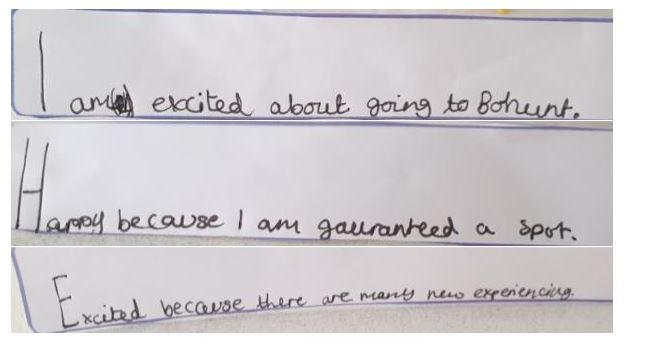 I am excited about going to Bohunt.
Happy because I am gauranteed a spot.
Excited because there are many new experiencing.